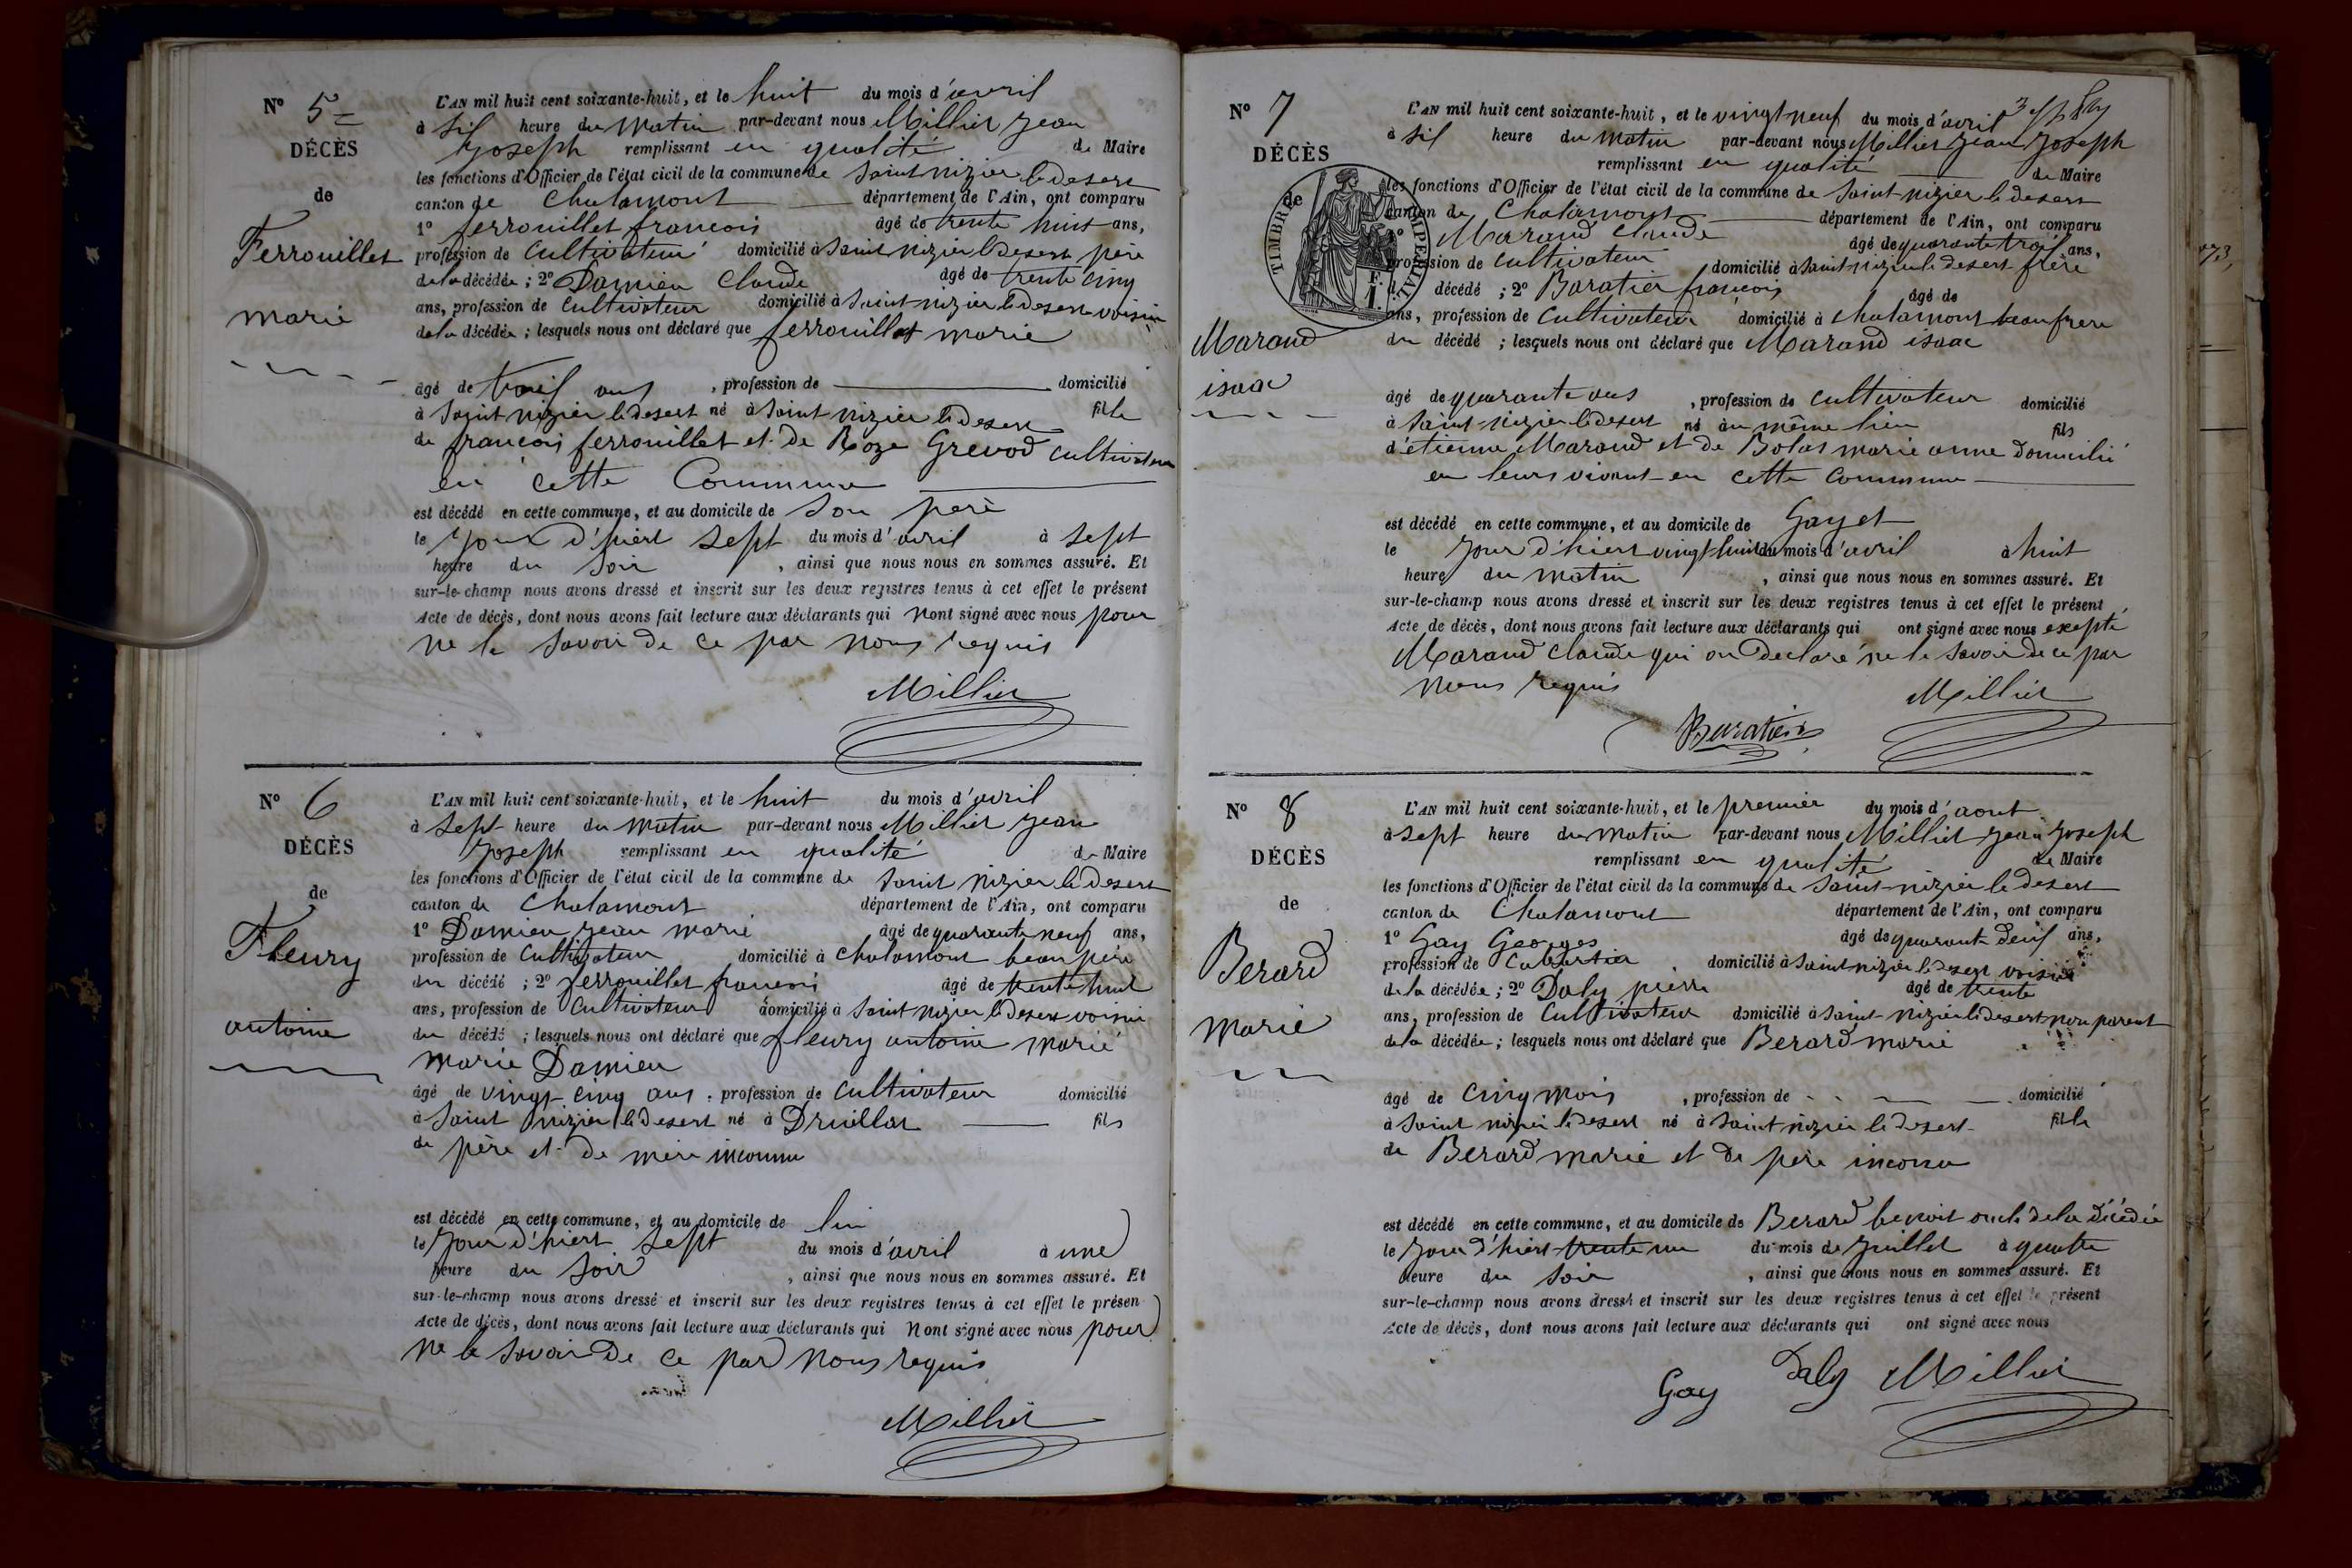 N° 5
DÉCÈS
de
Ferrouillet
marie
L'AN mil huit cent soixante-huit, et le huit du mois d'avril
à sil heure du matin par-devant nous Millier jean
joseph remplissant en qualité de Maire
les fonctions d'Officier de l'état civil de la commune de Saint nizier le desert
canton de Chalamont département de l'Ain, ont comparu
1° ferrouillet francois âgé de trente huit ans,
profession de cultivateur domicilié à Saint nizier le desert père
de la décédée ; 2° Damien Claude âgé de trente cinq
ans, profession de cultivateur domicilié à Saint nizier le desert voisin
de la décédée ; lesquels nous ont déclaré que ferrouillet marie
âgé de troil ans , profession de domicilié
à Saint nizier le desert né à Saint nizier le desert fille
de francois ferrouillet et de Roze Grevod cultivateur
en cette Commune
est décédé en cette commune, et au domicile de son père
le jour d'hiert sept du mois d'avril à sept
heure du soir , ainsi que nous nous en sommes assuré. Et
sur-le-champ nous avons dressé et inscrit sur les deux registres tenus à cet effet le présent
Acte de décès, dont nous avons fait lecture aux déclarants qui nont signé avec nous pour
ne le savoir de ce par nous requis
Millier
N° 6
DÉCÈS
de
Fleury
antoine
L'AN mil huit cent soixante-huit, et le huit du mois d'avril
à sept heure du matin par-devant nous Millier jean
joseph remplissant en qualité de Maire
les fonctions d'Officier de l'état civil de la commune de Saint nizier le desert
canton de Chalamont département de l'Ain, ont comparu
1° Damien jean marie âgé de quarante neuf ans,
profession de cultivateur domicilié à chalamont beau père
du décédé ; 2° ferrouillet francois âgé de trente huit
ans, profession de cultivateur domicilié à Saint nizier le desert voisin
du décédé ; lesquels nous ont déclaré que fleury antoine marié
marie Damien
âgé de vingt cinq ans , profession de cultivateur domicilié
à Saint nizier le desert né à Druillat fils
de père et de mère inconnu
est décédé en cette commune, et au domicile de lui
le jour d'hiert sept du mois d'avril à une
heure du soir , ainsi que nous nous en sommes assuré. Et
sur-le-champ nous avons dressé et inscrit sur les deux registres tenus à cet effet le présen
Acte de décès, dont nous avons fait lecture aux déclarants qui nont signé avec nous pour
ne le savoir de ce par nous requis
Millier
N° 7
DÉCÈS
de
TIMBRE IMPÉRIAL
Marand
isaac
L'AN mil huit cent soixante-huit, et le vingt neuf du mois d'avril
à sil heure du matin par-devant nous Millier jean joseph
remplissant en qualité de Maire
les fonctions d'Officier de l'état civil de la commune de Saint nizier le desert
canton de Chalamont département de l'Ain, ont comparu
1° Marand claude âgé de quarante troil ans,
profession de cultivateur domicilié à Saint nizier le desert frère
du décédé ; 2° Baratier francois âgé de
ans, profession de cultivateur domicilié à chalamont beau frere
du décédé ; lesquels nous ont déclaré que Marand isaac
âgé de quarante ans , profession de cultivateur domicilié
à Saint nizier le desert né au même lieu fils
d'étienne Marand et de Bolas marie anne domicilié
en leurs vivant en cette commune
est décédé en cette commune, et au domicile de Gayet
le jour d'hiert vingt huit du mois d'avril à huit
heure du matin , ainsi que nous nous en sommes assuré. Et
sur-le-champ nous avons dressé et inscrit sur les deux registres tenus à cet effet le présent
Acte de décès, dont nous avons fait lecture aux déclarants qui ont signé avec nous excepté
Marand claude qui on declaré ne le savoir de ce par
nous requis
Millier
Baratier
N° 8
DÉCÈS
de
Berard
marie
L'AN mil huit cent soixante-huit, et le premier du mois d'aout
à sept heure du matin par-devant nous Millier jean joseph
remplissant en qualité de Maire
les fonctions d'Officier de l'état civil de la commune de Saint nizier le desert
canton de Chalamont département de l'Ain, ont comparu
1° Gay Georges âgé de quarante deuil ans,
profession de Cabartier domicilié à Saint nizier le desert voisin
de la décédée ; 2° Daly pierre âgé de trente
ans, profession de cultivateur domicilié à Saint nizier le desert non parent
de la décédée ; lesquels nous ont déclaré que Berard marie
âgé de cinq mois , profession de domicilié
à Saint nizier le desert né à Saint nizier le desert fille
de Berard marie et de père inconu
est décédé en cette commune, et au domicile de Berard benoit oncle de la décédée
le jour d'hiert trente un du mois de juillet à quatre
heure du soir , ainsi que nous nous en sommes assuré. Et
sur-le-champ nous avons dressé et inscrit sur les deux registres tenus à cet effet le présent
Acte de décès, dont nous avons fait lecture aux déclarants qui ont signé avec nous
Gay Daly Millier